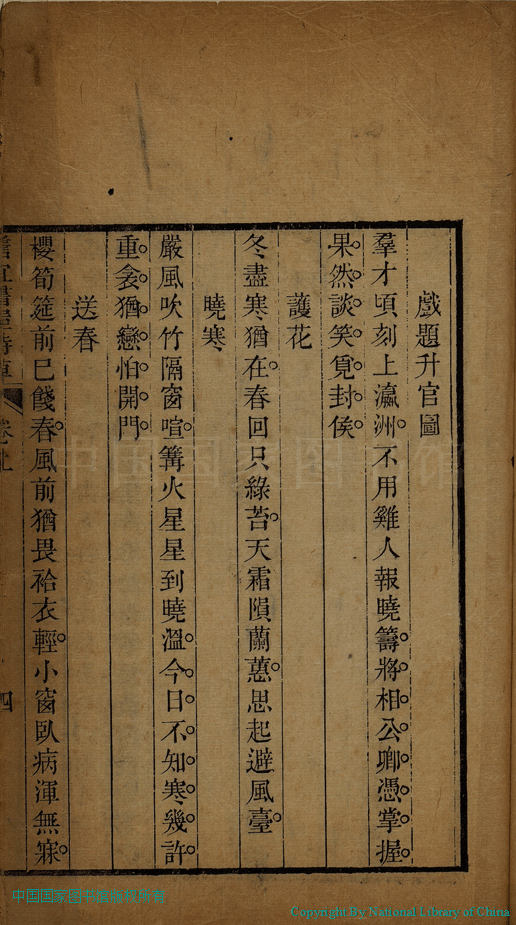 戲題升官圖
羣才頃刻上瀛洲。不用雞人報曉籌。將相公卿憑掌握。
果然談笑覓封侯。
護花
冬盡寒猶在。春回只綠苔。天霜隕蘭蕙。思起避風臺。
曉寒
嚴風吹竹隔窗喧。篝火星星到曉溫。今日不知寒幾許
重衾猶戀怕開門。
送春
櫻筍筵前已餞春。風前猶畏袷衣輕。小窗臥病渾無寐。
四
中国国家图书馆
Copyright By National Library of China